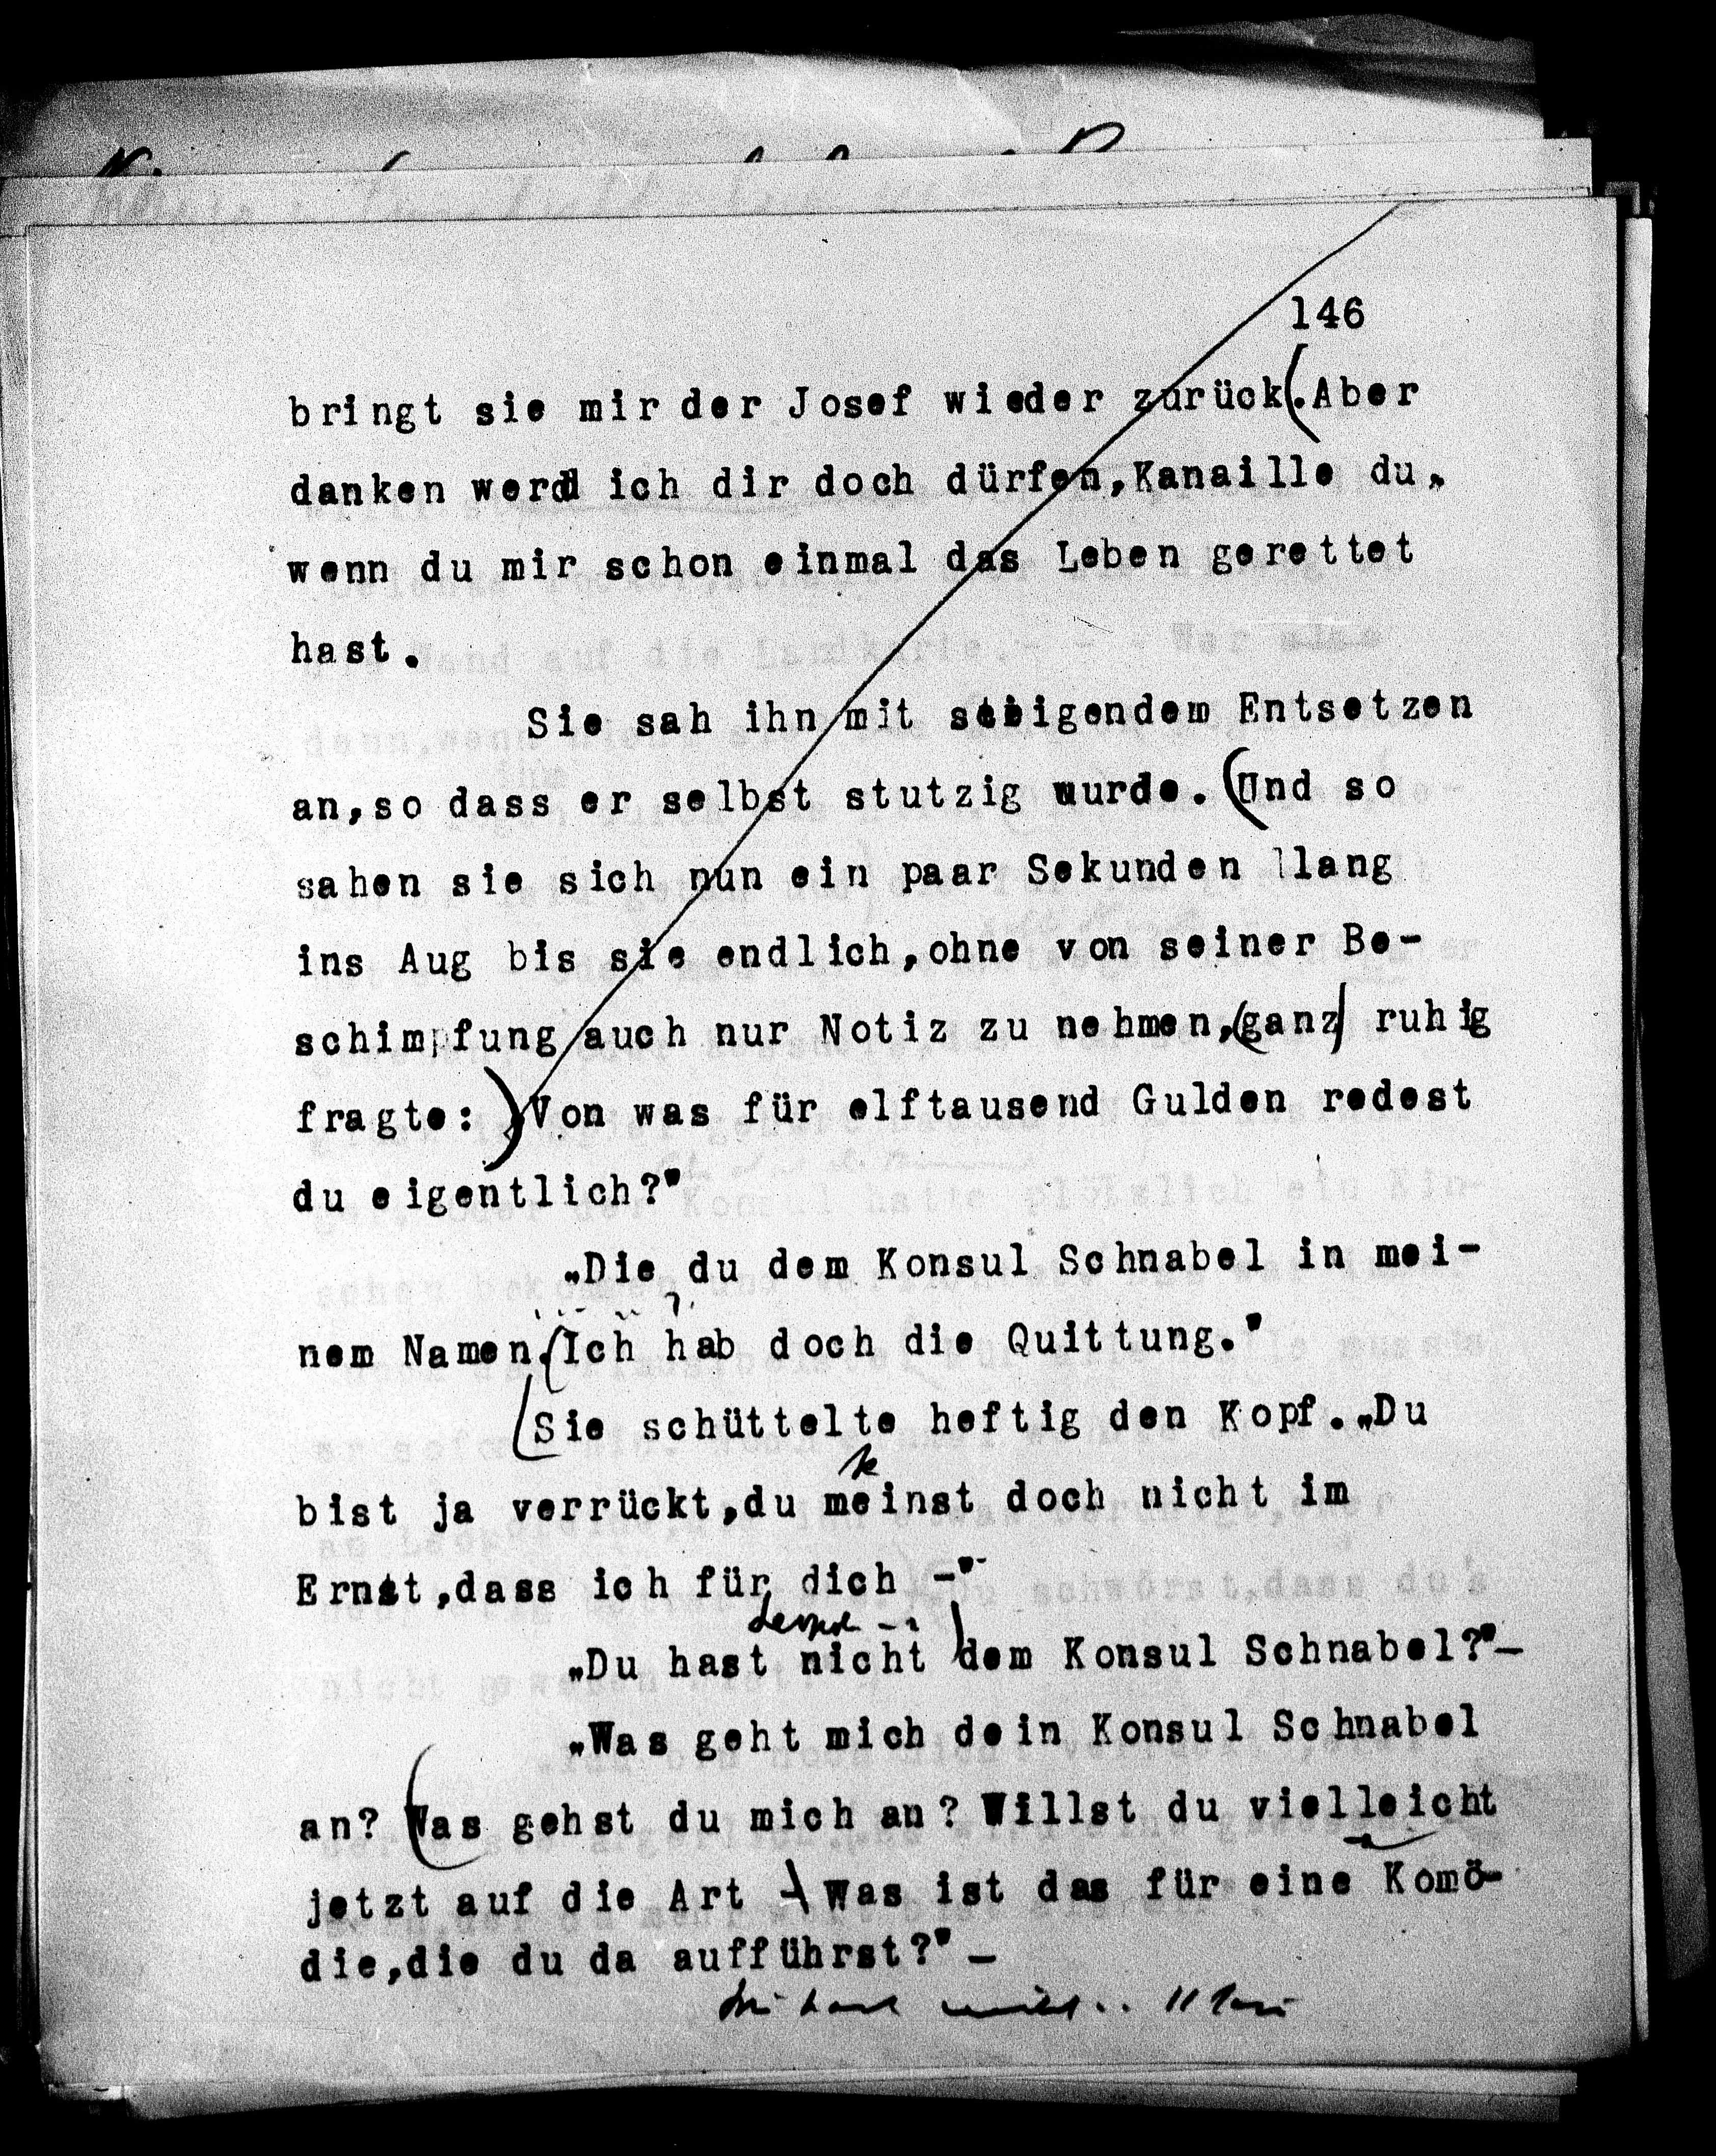 146
bringt sie mir der Josef wieder zurück(.Aber
danken werd ich dir doch dürfen,Kanaille du,
wenn du mir schon einmal das Leben gerettet
hast.
Sie sah ihn mit steigendem Entsetzen
an,so dass er selbst stutzig wurde. (Und so
sahen sie sich nun ein paar Sekunden llang
ins Aug bis sie endlich,ohne von seiner Be-
schimpfung auch nur Notiz zu nehmen,(ganz) ruhig
fragte:) „Von was für elftausend Gulden redest
du eigentlich?"
„Die du dem Konsul Schnabel in mei-
nem Namen.(Ich hab doch die Quittung."
(Sie schüttelte heftig den Kopf.„Du
bist ja verrückt,du meinst doch nicht im
Ernst,dass ich für dich -"
„Du hast nicht )dem Konsul Schnabel?"-
„Was geht mich dein Konsul Schnabel
an? (Was gehst du mich an? Willst du vielleicht
jetzt auf die Art -) Was ist das für eine Komö-
die,die du da aufführst?" -